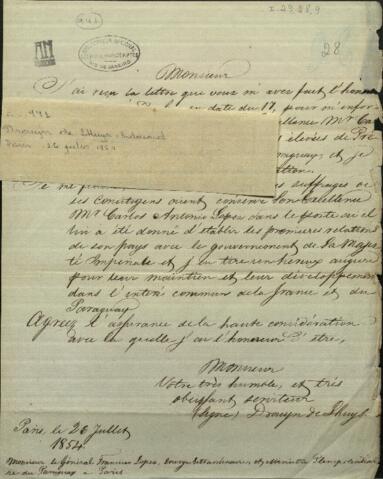 I-29.28.9
441
28
BIBLIOTHECA NACIONAL
RIO DE JANEIRO
Monsieur
J'ai reçu la lettre que vous m'avez fait l'honn
en date du 17, pour m'infor
Mr Ca
élevées de Pré
et je
441
Drouyn de Lhuys
Paris 26 julio 1854
suffrages de
ses concitoyens aient conservé Son Excellence
Mr Carlos Antonio Lopez dans le poste où il
lui a été donné d'établir les premières relations
de son pays avec le gouvernement de Sa Majes
té Impériale et j'en tire un heureux augure
pour leur maintien et leur développement
dans l'intérêt commun de la France et du
Paraguay
Agréez l'assurance de la haute considération
avec laquelle j'ai l'honneur d'être,
Monsieur
Votre très humble, et très
obéissant serviteur
(signé) Drouyn de Lhuys
Paris, le 26 Juillet
1854
Monsieur le Général Francisco Lopez, Envoyé Extraordinaire, et Ministre Plénipotentiai
re du Paraguay à Paris